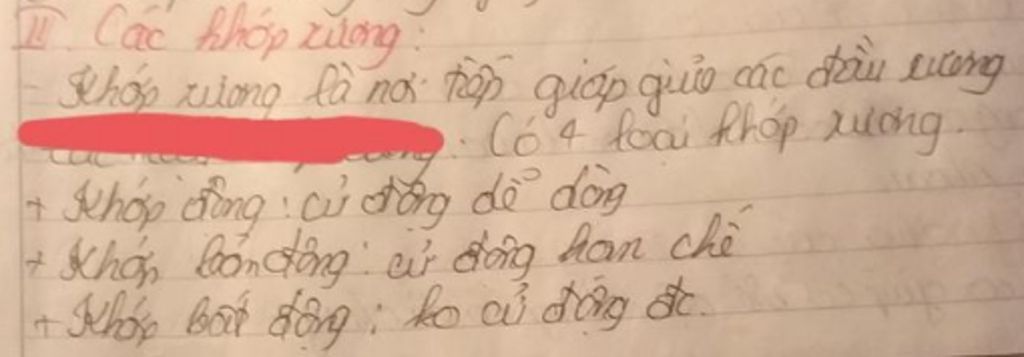 II. Các khớp xương:
- Khớp xương là nơi tiếp giáp giữa các đầu xương
. Có 4 loại khớp xương.
+ Khớp động: cử động dễ dàng
+ Khớp bán động: cử động hạn chế
+ Khớp bất động: ko cử động đc.